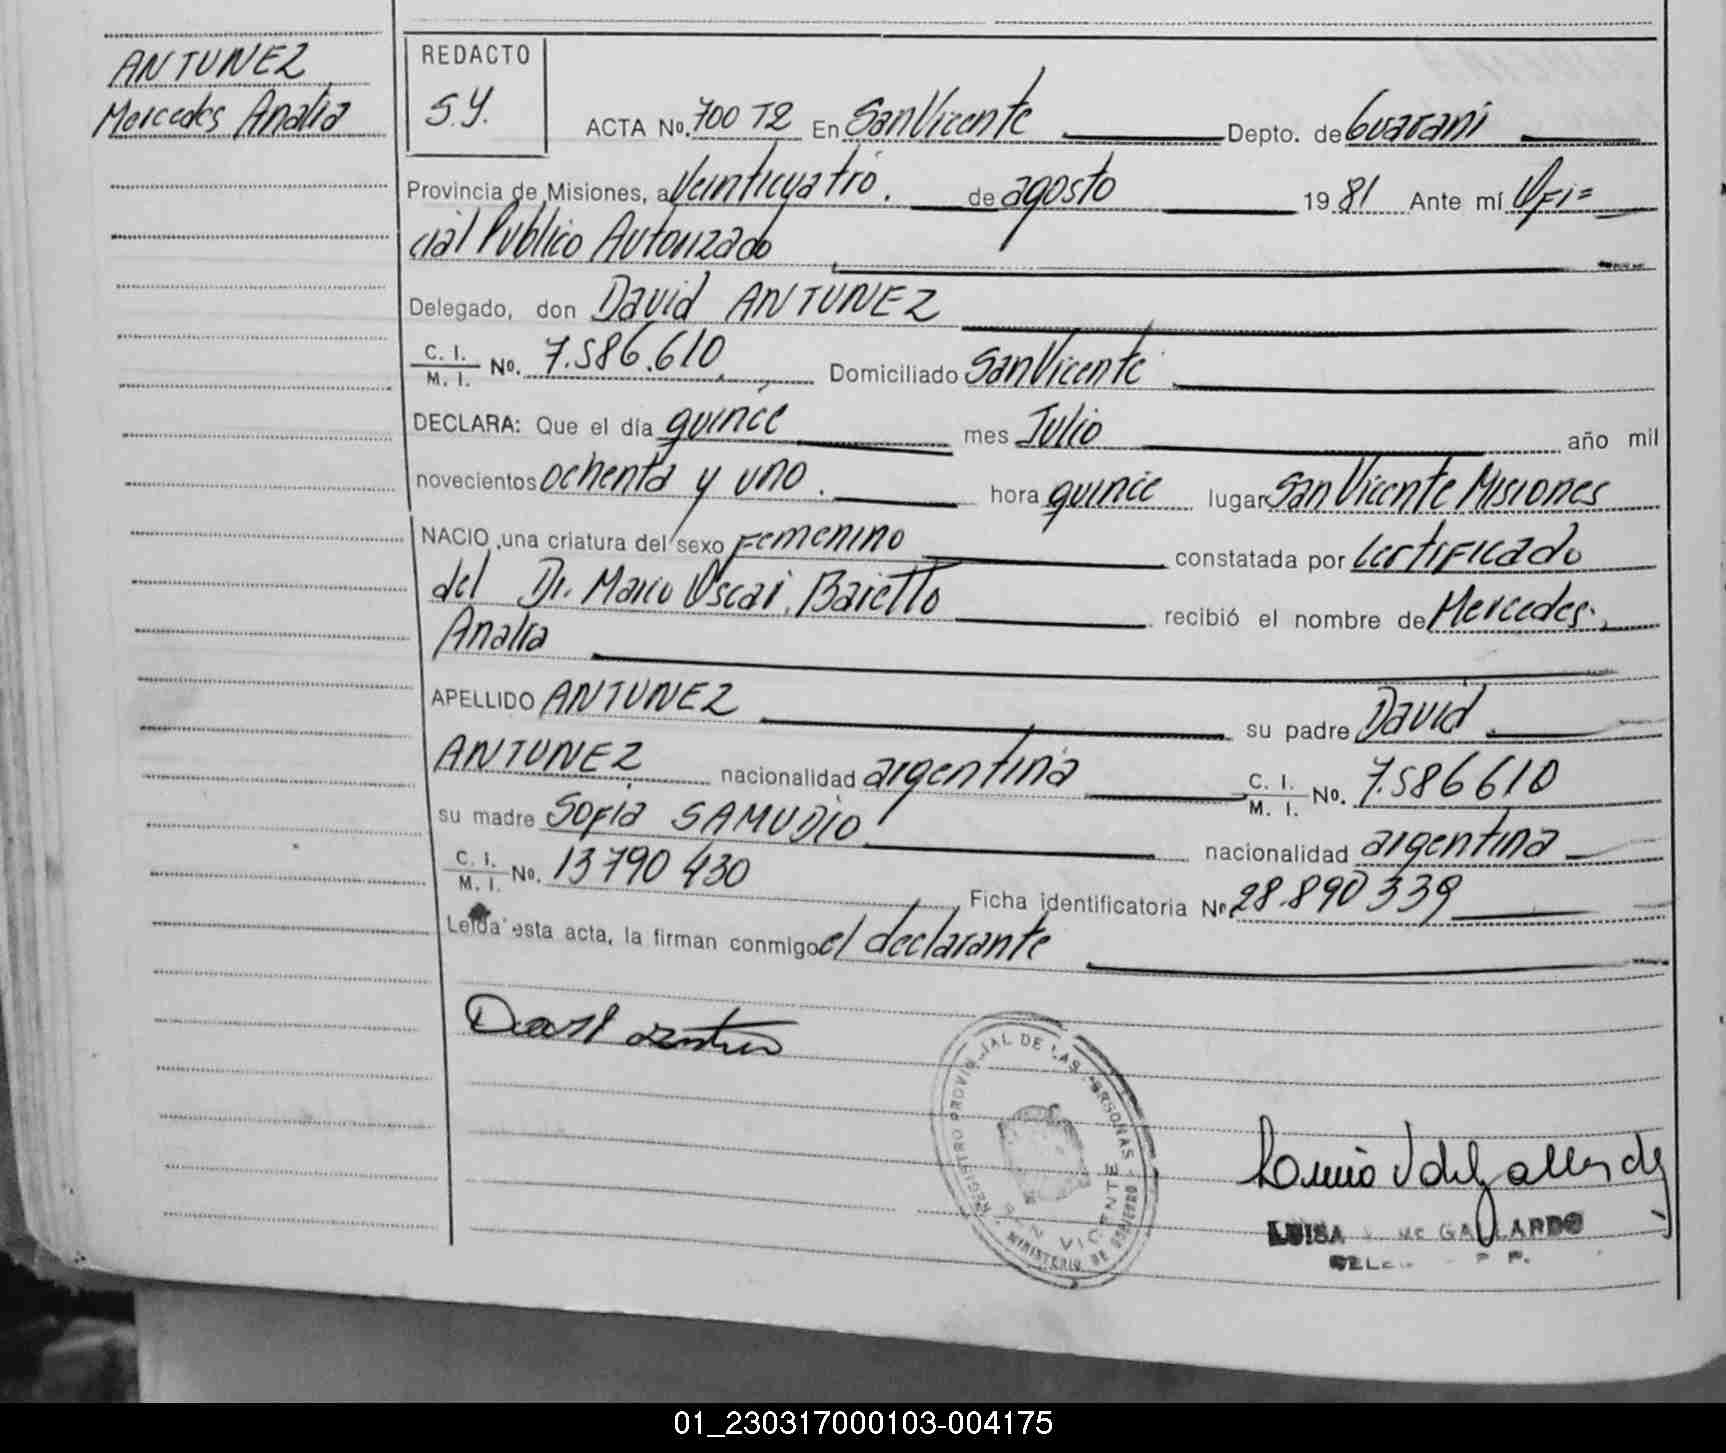 ANTUNEZ
Mercedes Analia
REDACTO
S.Y.
ACTA No. 700 T2 En San Vicente Depto. de Guarani
Provincia de Misiones, a Veinticuatro. de agosto 1981 Ante mí Ofi=
cial Publico Autorizado
Delegado, don David ANTUNEZ
C. I. / M. I. No. 7.586.610 Domiciliado San Vicente
DECLARA: Que el día quince mes Julio año mil
novecientos ochenta y uno. hora quince lugar San Vicente Misiones
NACIO, una criatura del sexo Femenino constatada por Certificado
del Dr. Marco Oscar Baietto recibió el nombre de Mercedes
Analia
APELLIDO ANTUNEZ su padre David
ANTUNEZ nacionalidad argentina C. I. / M. I. No. 7.586610
su madre Sofia SAMUDIO nacionalidad argentina
C. I. / M. I. No. 13790430 Ficha identificatoria No 28.890339
Leída esta acta, la firman conmigo el declarante
REGISTRO PROVINCIAL DE LAS PERSONAS
SAN VICENTE
MINISTERIO DE GOBIERNO
LUISA GALLARDO
01_230317000103-004175